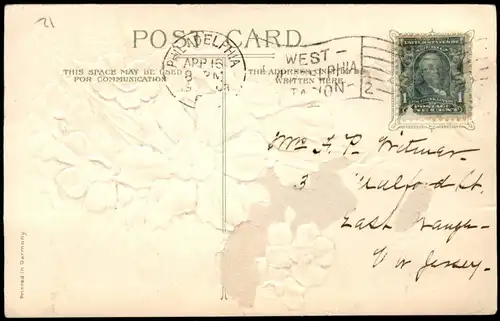 21
POST CARD
THIS SPACE MAY BE USED
FOR COMMUNICATION
THE ADDRESS ONLY TO BE
WRITTEN HERE
PHILADELPHIA
APR 18
8 PM
WEST
STATION
2
Mrs A. P. Witmer
3 Walford St.
East Orange
New Jersey.
Printed in Germany